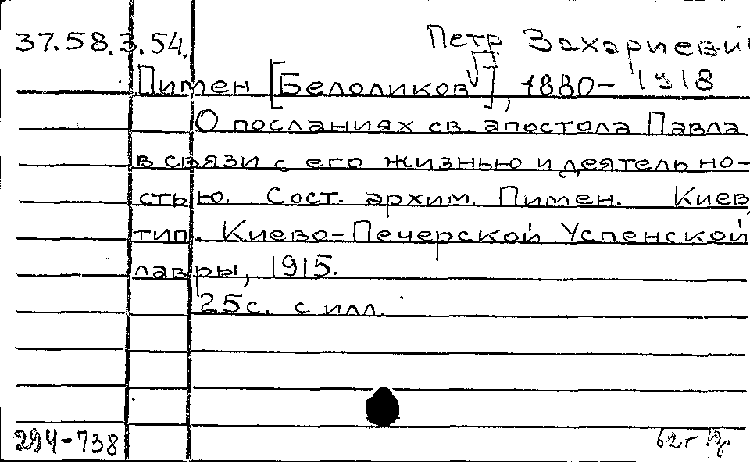 37.58.3.54. Петр Захариевич
Пимен [Белоликов], 1880-1918
О посланиях св. апостола Павла
в связи с его жизнью и деятельно-
стью. Сост. архим. Пимен. Киев,
тип. Киево-Печерской Успенской
лавры, 1915.
25с. с илл.
294-738 62г